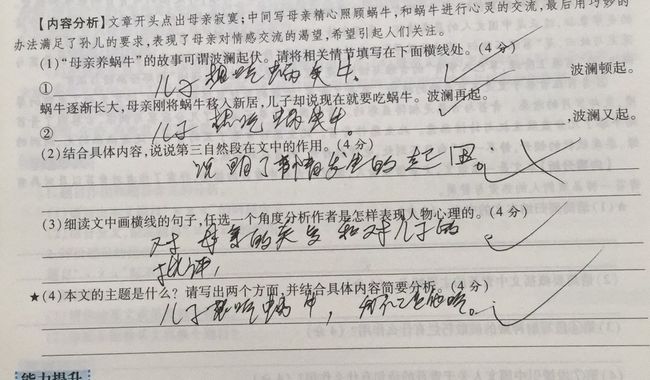 【内容分析】文章开头点出母亲寂寞;中间写母亲精心照顾蜗牛,和蜗牛进行心灵的交流,最后用巧妙的
办法满足了孙儿的要求,表现了母亲对情感交流的渴望,希望引起人们关注。
(1)“母亲养蜗牛”的故事可谓波澜起伏。请将相关情节填写在下面横线处。(4分)
① 儿子想吃蜗牛。 波澜顿起。
蜗牛逐渐长大,母亲刚将蜗牛移入新居,儿子却说现在就要吃蜗牛。波澜再起。
② 儿子想吃蜗牛。 ,波澜又起。
(2)结合具体内容,说说第三自然段在文中的作用。(4分)
说明了事情发生的起因。
(3)细读文中画横线的句子,任选一个角度分析作者是怎样表现人物心理的。(4分)
对母亲的关爱和对儿子的
批评,
★(4)本文的主题是什么?请写出两个方面,并结合具体内容简要分析。(4分)
儿子想吃蜗牛,
能力提升